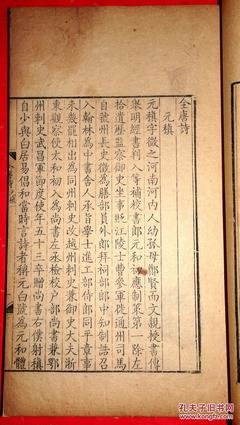 全唐詩
元稹
元稹字微之河南河內人幼孤母鄭賢而文親授書傳
舉明經書判入等補校書郎元和初應制策第一除左
拾遺歷監察御史坐事貶江陵士曹參軍徙通州司馬
自虢州長史徵為膳部員外郎拜祠部郎中知制誥召
入翰林為中書舍人承旨學士進工部侍郎同平章事
未幾罷相出為同州刺史改越州刺史兼御史大夫浙
東觀察使太和初入為尚書左丞檢校戶部尚書兼鄂
州刺史武昌軍節度使年五十三卒贈尚書右僕射稹
自少與白居易倡和當時言詩者稱元白號為元和體